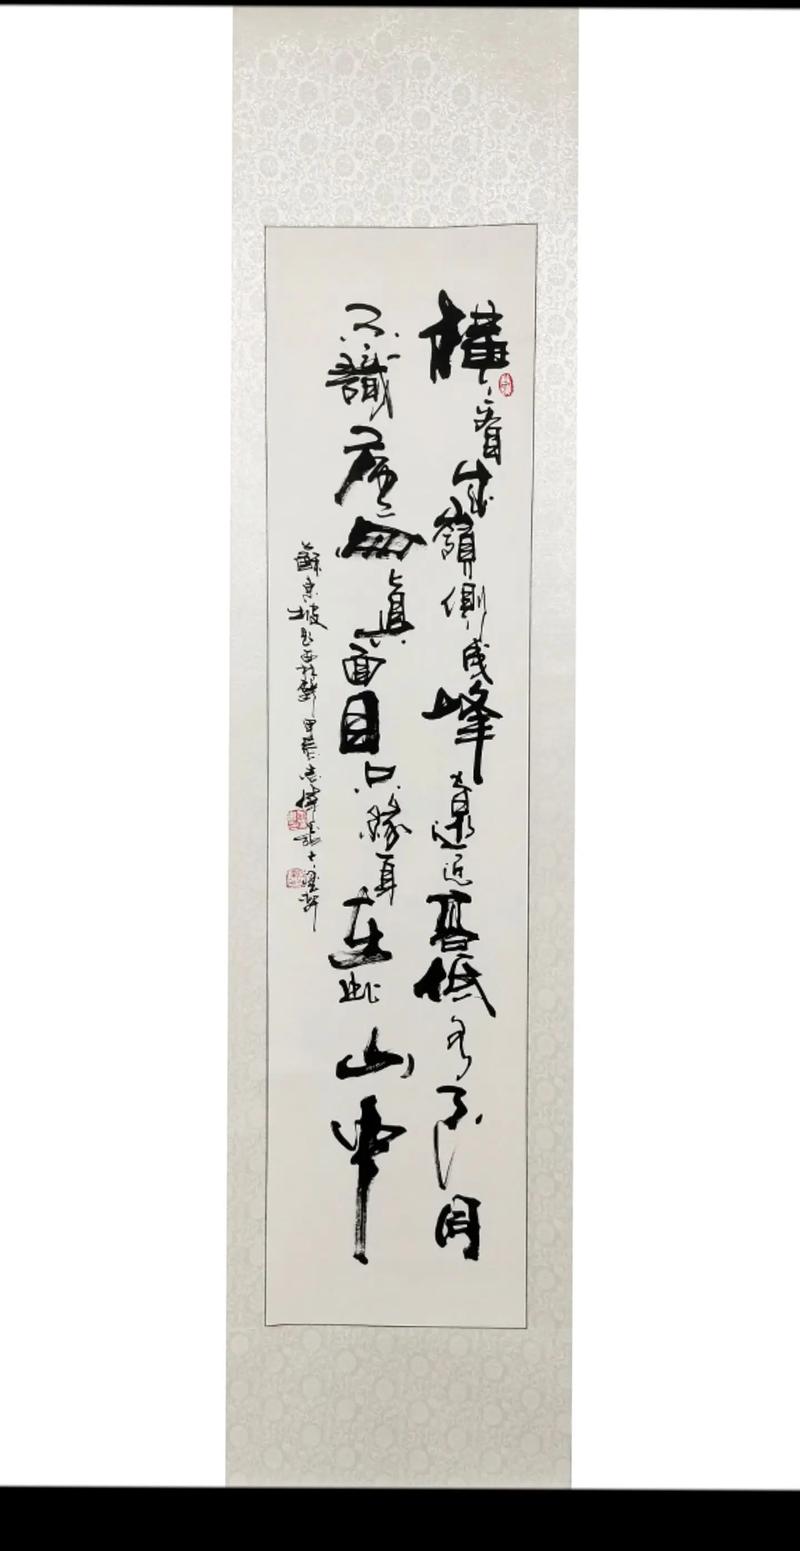 橫看成嶺側成峰遠近高低各不同
不識廬山眞面目只緣身在此山中
蘇東坡題西林壁